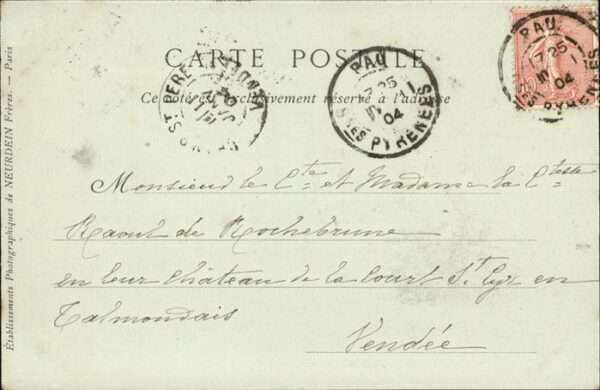 CARTE POSTALE
Ce côté est exclusivement réservé à l'adresse
PAU
17 25
1
04
BSES PYRÉNÉES
PAU
17 25
1
04
PYRÉNÉES
ST PÈRE
VENDÉE
Monsieur le Cte et Madame la Ctesse
Raoul de Rochebrune
en leur château de la Court St Cyr en
Talmondais
Vendée
Établissements Photographiques de NEURDEIN Frères. — Paris